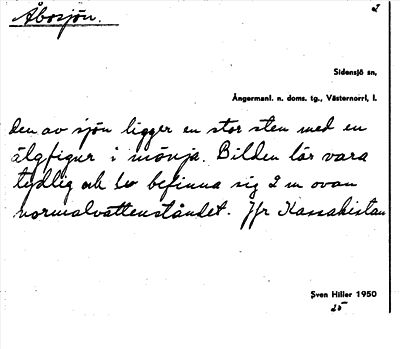 Åbosjön. 2
Sidensjö sn,
Ångermanl. n. doms. tg., Västernorrl, l.
den av sjön ligger en stor sten med en
älgfigur i mönja. Bilden lär vara
tydlig och befinna sig 2 m ovan
normalvattenståndet. Jfr Kassakistan
Sven Hiller 1950
25